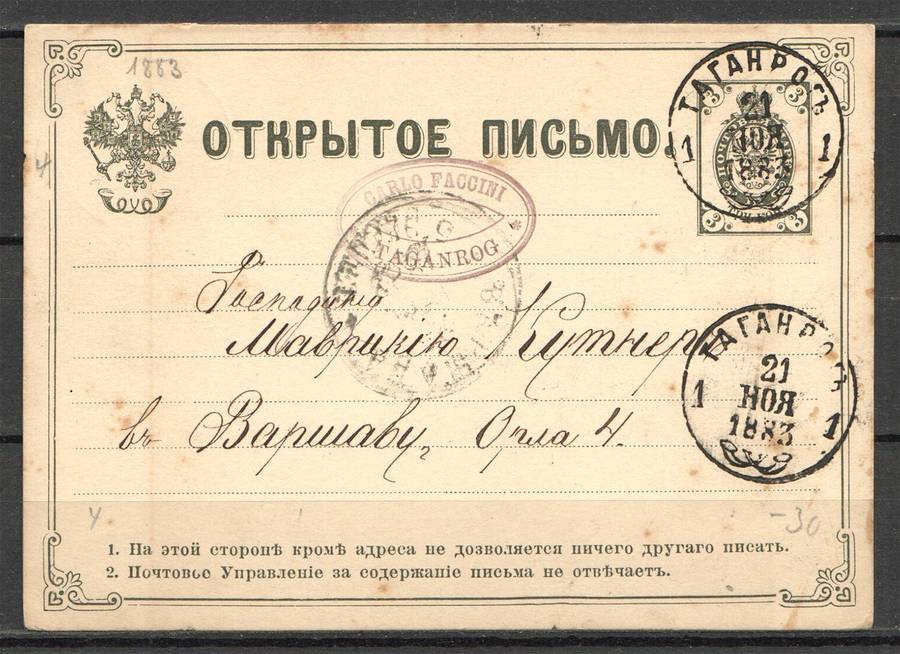 1883
ОТКРЫТОЕ ПИСЬМО.
ТАГАНРОГЪ
21
НОЯ
1883
1 1
3 3
3 3
ТРИ КОП.
CARLO FACCINI
TAGANROG *
4
Господину
Маврикію Кутнеръ
въ Варшаву, Орла 4.
ТАГАНРОГЪ
1 21 1
НОЯ
1883
4
-30
1. На этой сторонѣ кромѣ адреса не дозволяется ничего другаго писать.
2. Почтовое Управленіе за содержаніе письма не отвѣчаетъ.